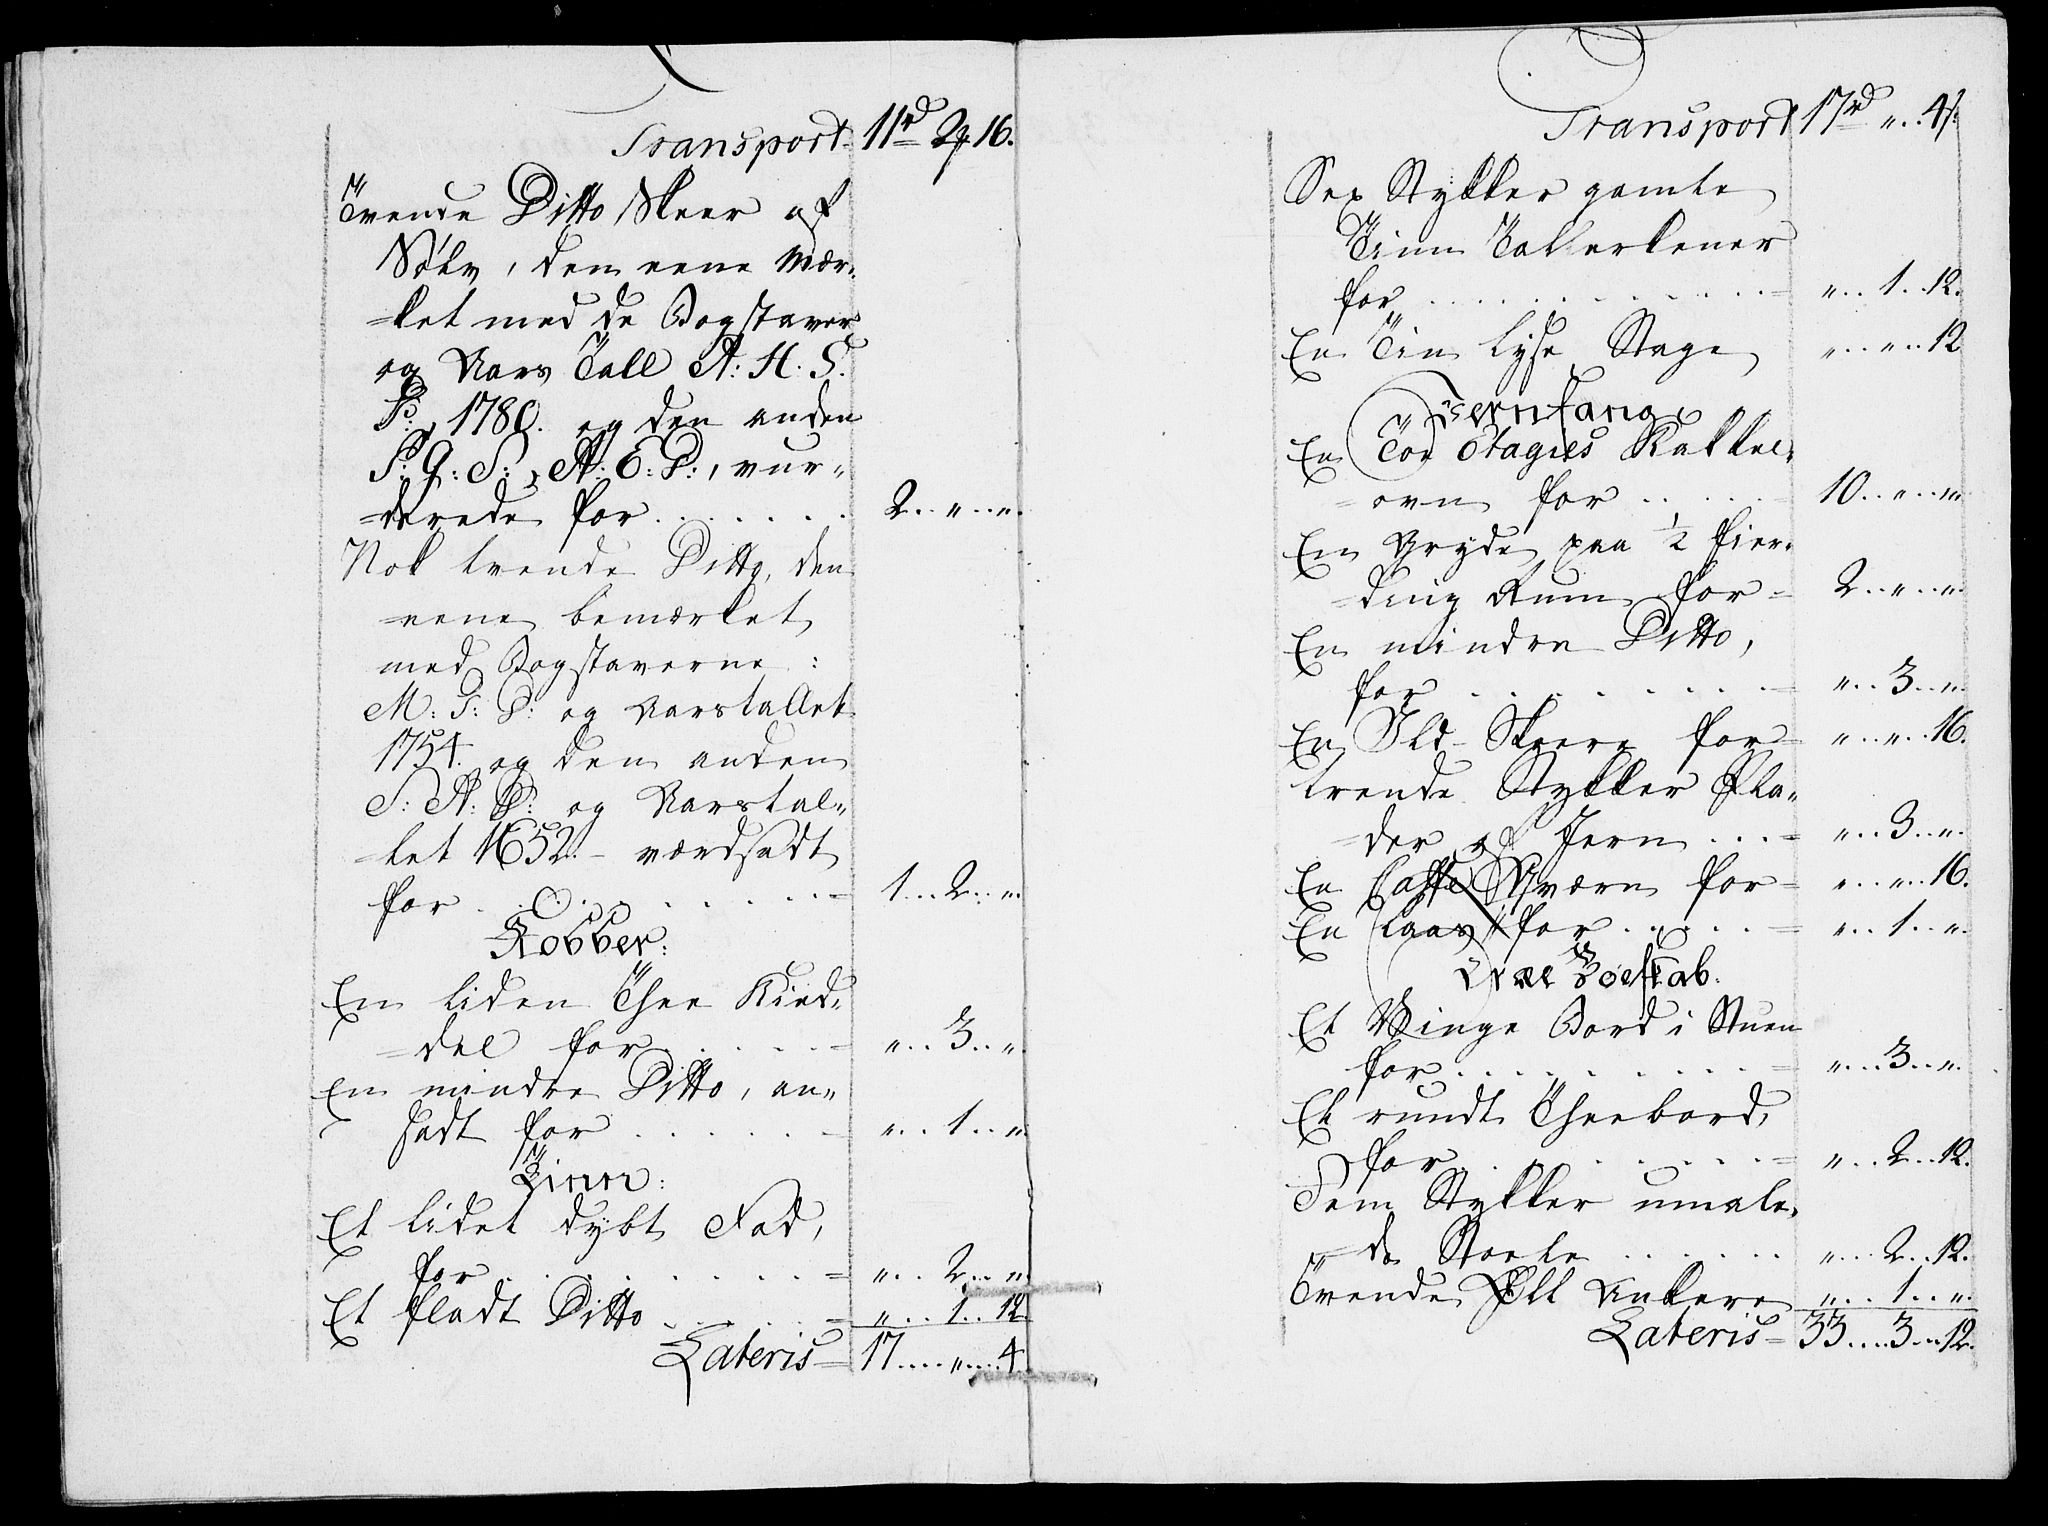 Transport 11rd 2# 16.
Tvende Ditto Skeer af
Sölv, den eene Mær-
=ket med de Bogstaver
og Aars Tall A: H: S.
P:, 1780. og den anden
P: G: S:, A: E: P:, vur-
=derede for . . . . . . 2 .. " .. ".
Nok tvende Ditto, den
=eene bemærket
med Bogstaverne :
M: T: P: og Aarstallet
1754. og den anden
S: A: P: og Aarstal-
=let 1652. - værdsadt
for . . . . . . = 1 .. 2 .. ".
Kobber:
En liden Thee Kied-
=del for . . . . = " .. 3 .. ".
En mindre Ditto, an-
sadt for . . . . . = " .. 1 .. ".
Tinn:
Et lidet dybt Fad,
for . . . . . . . = " .. 2 .. ".
Et fladt Ditto . . . . = " .. 1 .. 12.
Lateris = 17 .... " .... 4.
Transport 17rd " .. 4 s.
Sex Stykker gamle
Tinn Tallerkener
for . . . . . . . . = " .. 1 .. 12.
En Tin Lyse Stage " .. " .. 12
Isernfang
En Toe Etagies Kakkel-
=ovn for . . . . = 10 .. " .. ".
En Gryde paa 1/2 fier-
=ding Rum for = 2 .. " .. ".
En mindre Ditto,
for . . . . . . . . = " .. 3 .. ".
En Ild Skeere for = " .. " .. 16.
trende Stykker Pla-
=der af Jern . . . = " .. 3 .. ".
En Caffe Qværn for = " .. " .. 16.
En Laas for . . . . = " .. 1 .. ".
Træ Boeskab:
Et Vinge Bord i Stuen
for . . . . . . . . = " .. 3 .. ".
Et rundt Theebord,
for . . . . . . . = " .. 2 .. 12.
Fem Stykker umale-
=de Stoele . . . . . " .. 2 .. 12.
Tvende Øll Ankere " .. 1 .. ".
Lateris = 33 .... 3 .. 12.